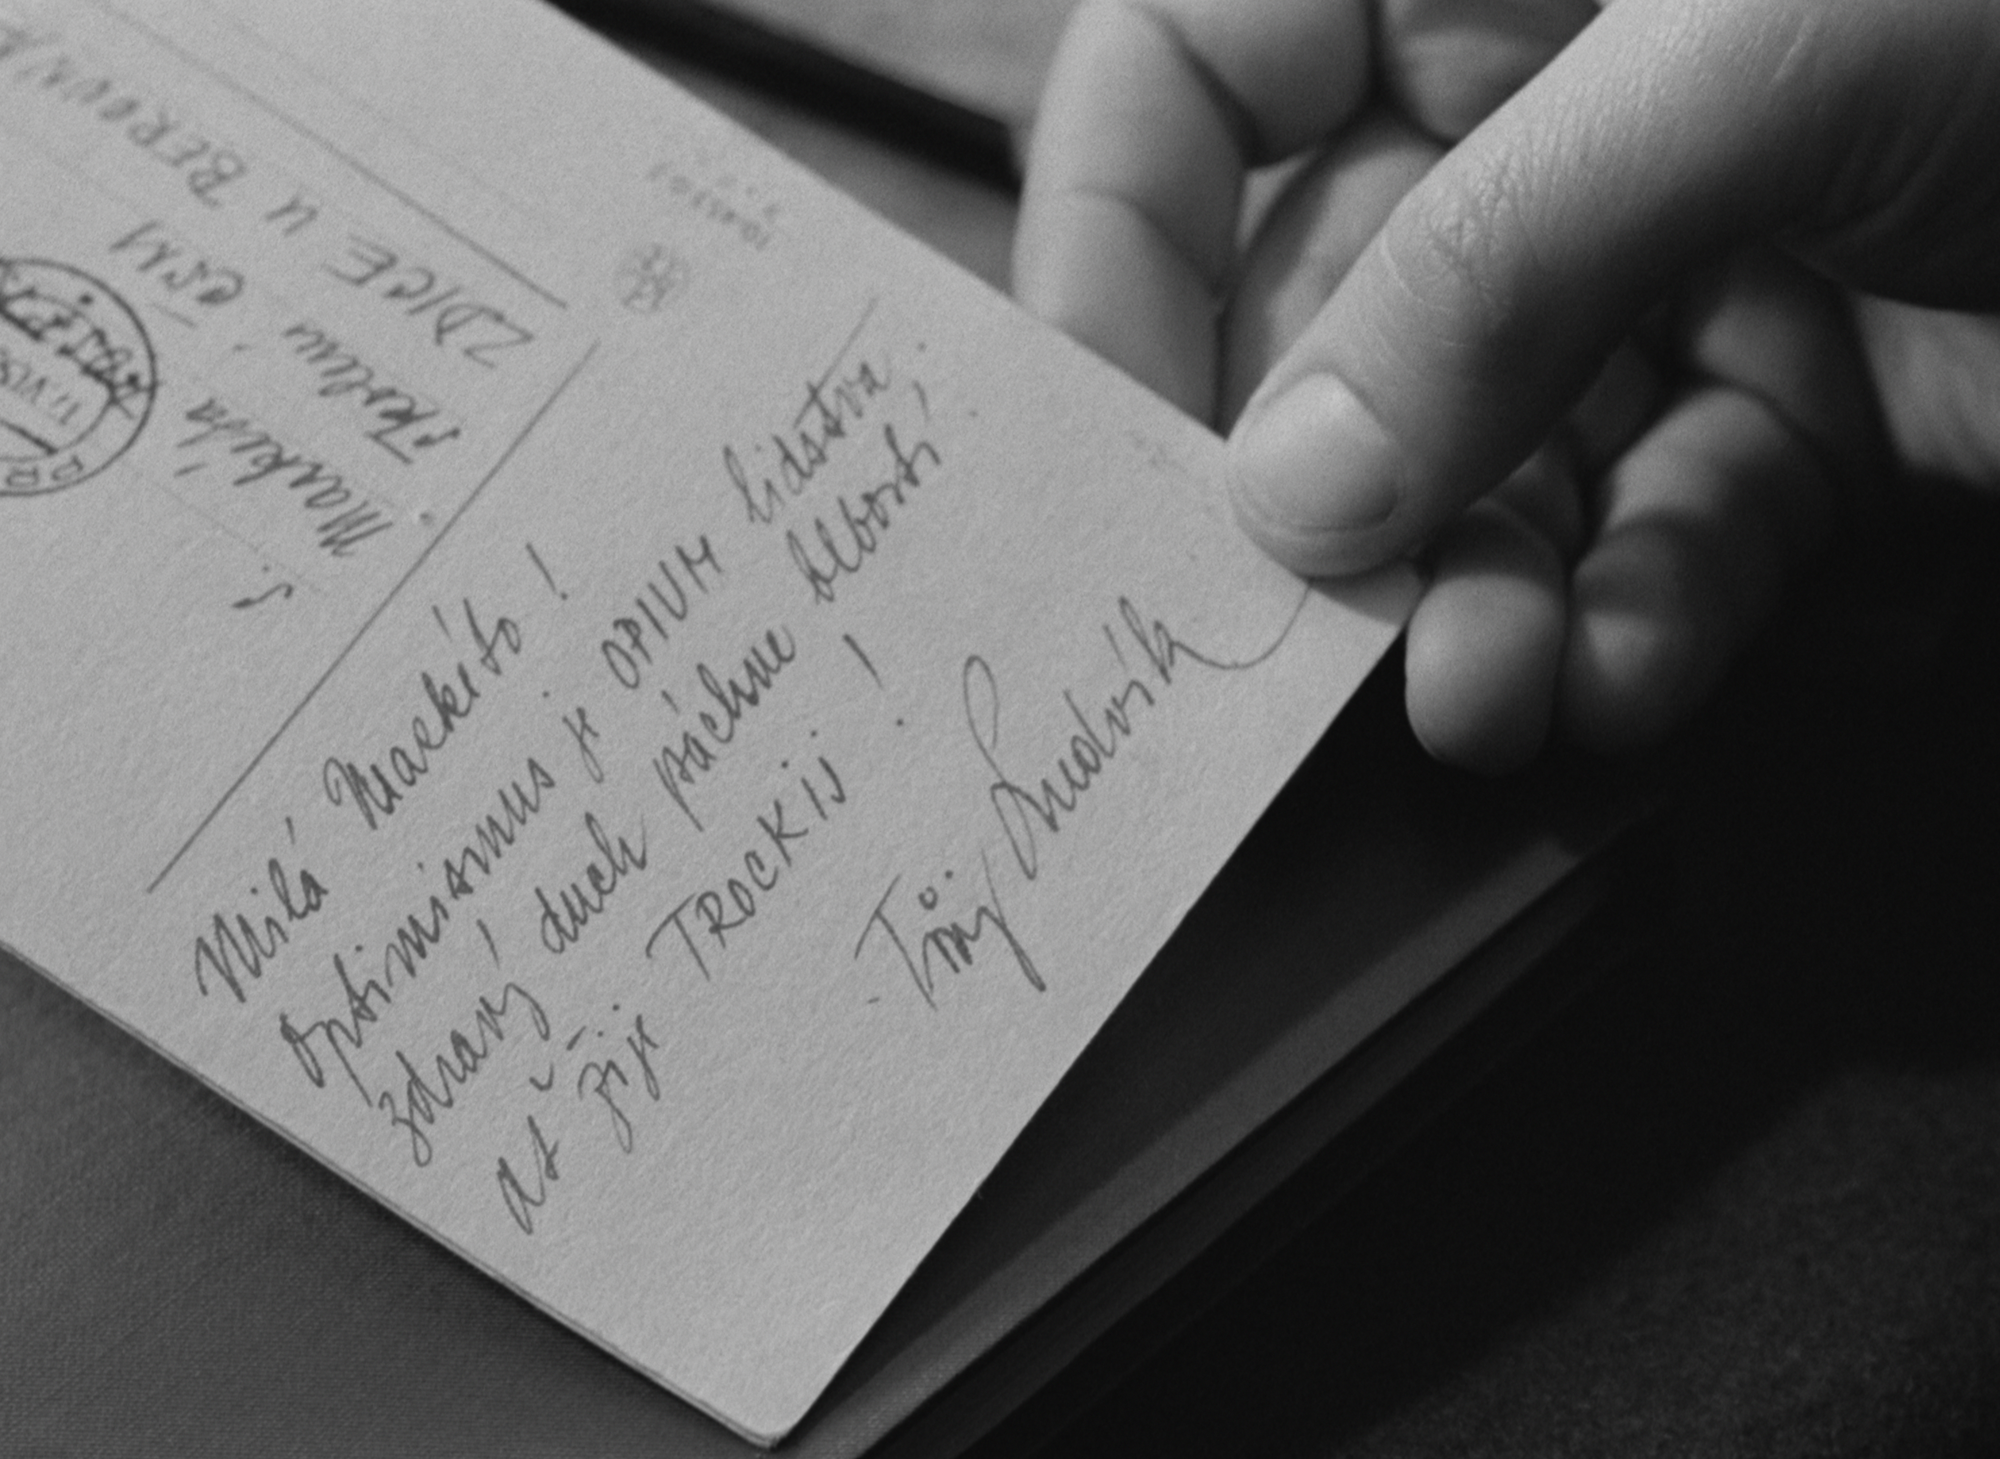 Milá Markéto!
Optimismus je OPIUM lidstva.
zdravý duch páchne blbostí!
ať žije TROCKIJ!
Tvůj Ludvík
S.
Markéta
ZDICE U BEROUNA